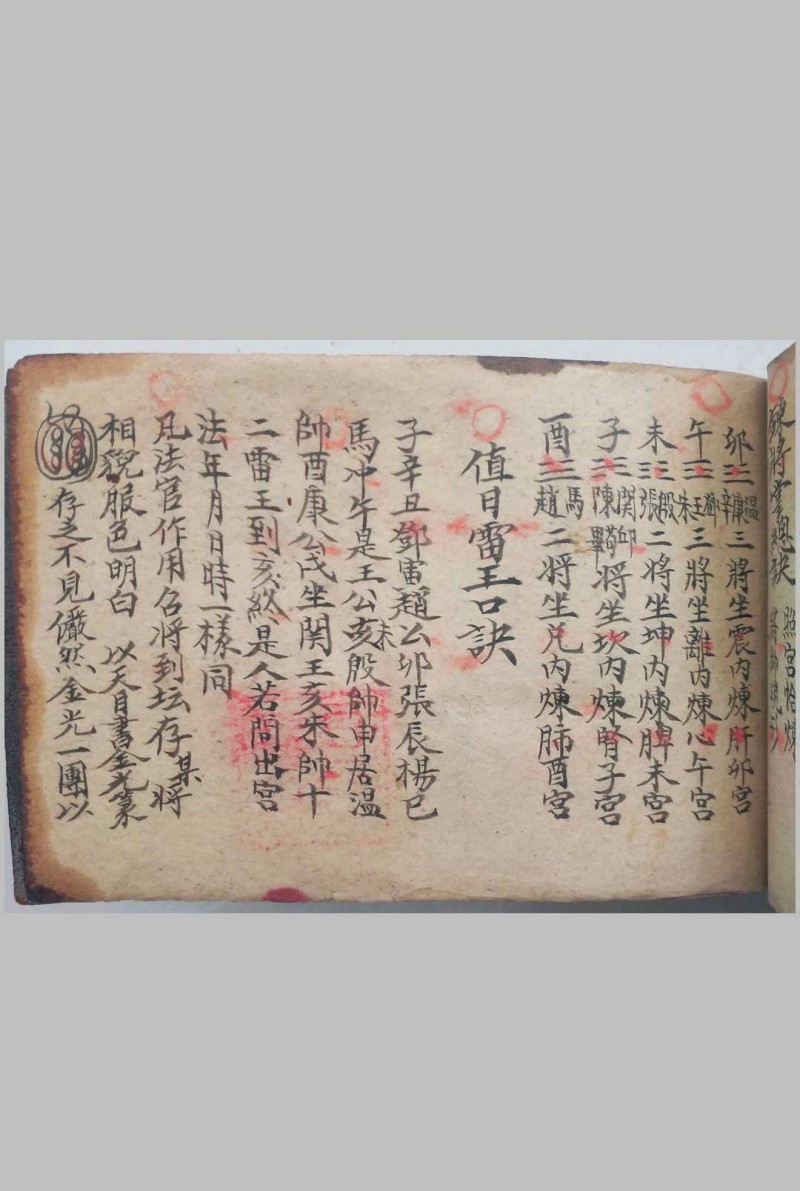 煉將掌總訣 照宮恰煉
卯三三 溫康辛 三將坐震內煉肝卯宮
午三三 鄧王朱 三將坐離內煉心午宮
未三三 殷張 二將坐坤內煉脾未宮
子三三 関邱陳畢 將坐坎內煉腎子宮
酉三三 馬趙 二將坐兌內煉肺酉宮
值日雷王口訣
子辛丑鄧寅趙公卯張辰楊巳
馬冲午是王公未殷帥申居溫
帥酉康公戌坐関王亥朱帥十
二雷王到亥終是人若問出宮
法年月日時一樣同
凡法官作用召將到坛存某將
相貌服色明白 以天目書金光篆
存之不見儼然金光一團以